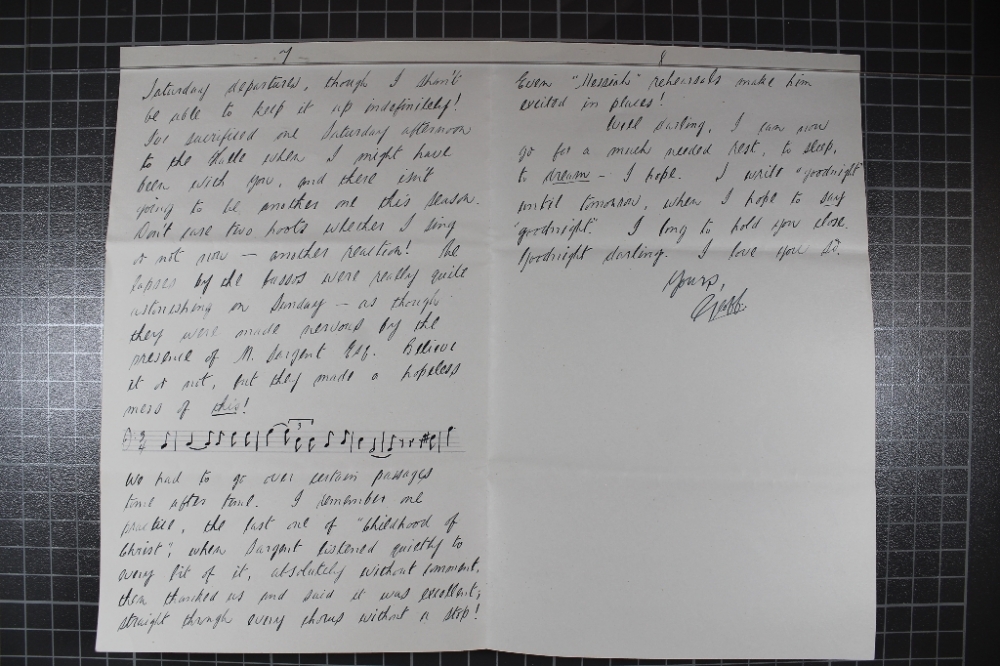 7
Saturday departures, though I shan't
be able to keep it up indefinitely!
I've sacrificed one Saturday afternoon
to the Halle when I might have
been with you, and there isn't
going to be another one this season.
Don't care two hoots whether I sing
or not now — another reaction! The
lapses by the basses were really quite
astonishing on Sunday — as though
they were made nervous by the
presence of M. Sargent Esq. Believe
it or not, but they made a hopeless
mess of this!
3
4
3
We had to go over certain passages
time after time. I remember one
practice, the last one of "Childhood of
Christ", when Sargent listened quietly to
every bit of it, absolutely without comment,
then thanked us and said it was excellent;
straight through every chorus without a stop!
8
Even "Messiah" rehearsals make him
excited in places!
Well darling, I can now
go for a much needed rest, to sleep,
to dream — I hope. I write "goodnight"
until tomorrow, when I hope to say
"goodnight". I long to hold you close.
Goodnight darling. I love you so.
Yours,